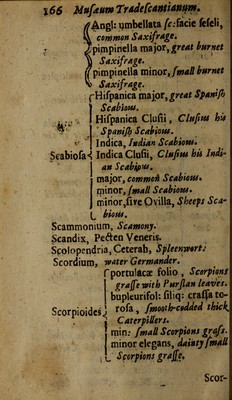 166 Musæum Tradescantianum.
Angl: umbellata sc: facie seseli,
common Saxifrage.
pimpinella major, great burnet
Saxifrage.
pimpinella minor, small burnet
Saxifrage.
Hispanica major, great Spanish
Scabious.
Hispanica Clusii, Clusius his
Spanish Scabious.
Indica, Indian Scabious.
Scabiosa Indica Clusii, Clusius his Indi-
an Scabious.
major, common Scabious.
minor, small Scabious.
minor, sive Ovilla, Sheeps Sca-
bious.
Scammonium, Scamony.
Scandix, Pecten Veneris.
Scolopendria, Ceterah, Spleenwort.
Scordium, water Germander.
portulacæ folio, Scorpions
grasse with Purslan leaves.
bupleurifol: siliq: crassa to-
Scorpioides rosa, smooth-codded thick
Caterpillers.
min: small Scorpions grass.
minor elegans, dainty small
Scorpions grasse.
Scor-